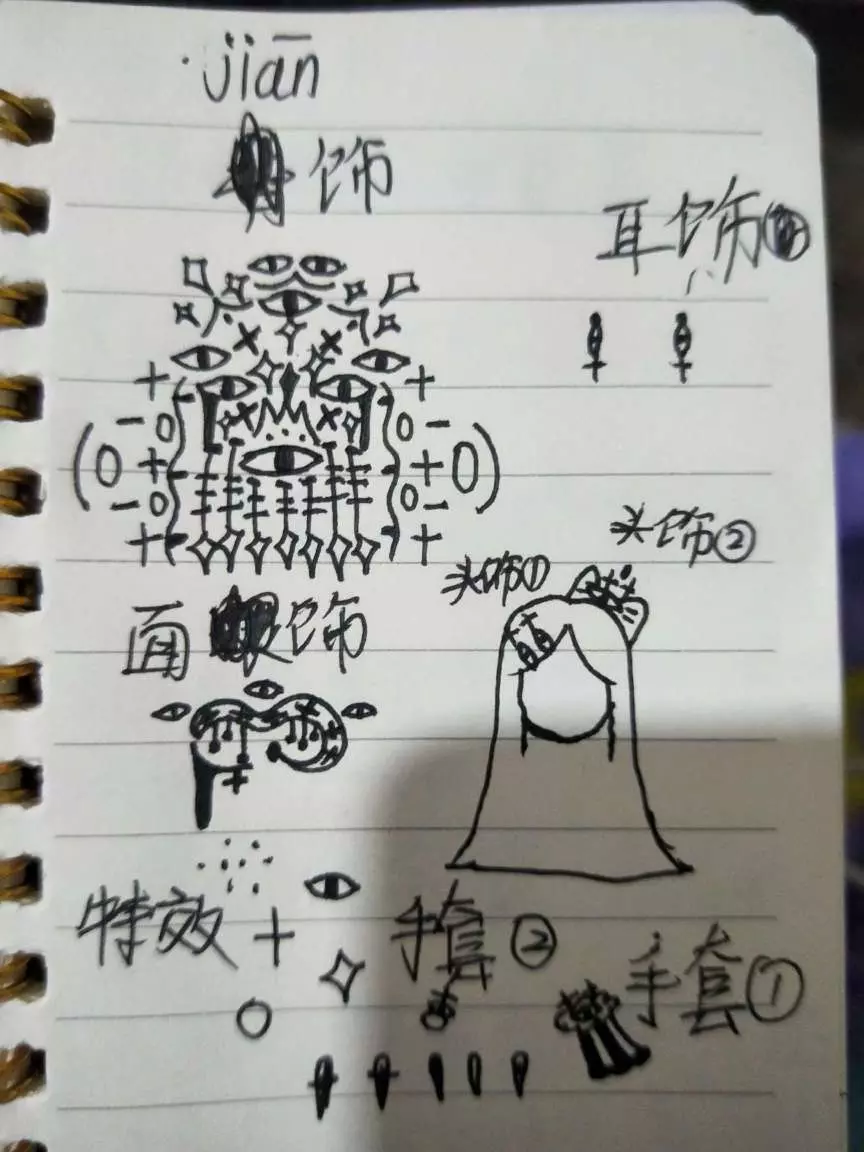 jiān
饰
耳饰
头饰②
头饰①
面饰
特效
手套②
手套①